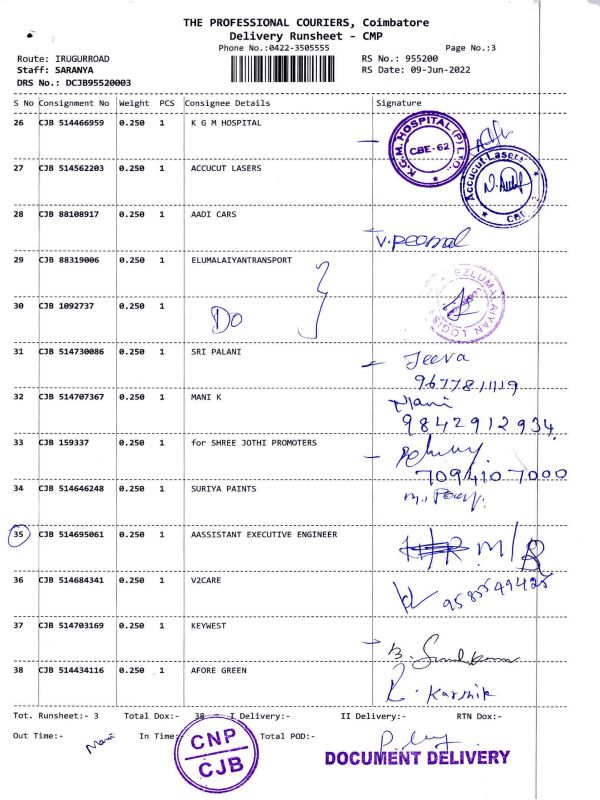 THE PROFESSIONAL COURIERS, Coimbatore
Delivery Runsheet - CMP
Phone No.:0422-3505555 Page No.:3
Route: IRUGURROAD RS No.: 955200
Staff: SARANYA RS Date: 09-Jun-2022
DRS No.: DCJB95520003
S No Consignment No Weight PCS Consignee Details Signature
26 CJB 514466959 0.250 1 K G M HOSPITAL
K.G.M. HOSPITAL (P) LTD. CBE-62
27 CJB 514562203 0.250 1 ACCUCUT LASERS
Accucut Lasers CBE
28 CJB 88108917 0.250 1 AADI CARS
29 CJB 88319006 0.250 1 ELUMALAIYANTRANSPORT
EZLUMALAIYAN LOGIS
30 CJB 1092737 0.250 1 Do
31 CJB 514730086 0.250 1 SRI PALANI Jeeva
32 CJB 514707367 0.250 1 MANI K Mani
9842912934
33 CJB 159337 0.250 1 for SHREE JOTHI PROMOTERS
7094107000
34 CJB 514646248 0.250 1 SURIYA PAINTS
35 CJB 514695061 0.250 1 AASSISTANT EXECUTIVE ENGINEER
36 CJB 514684341 0.250 1 V2CARE
37 CJB 514703169 0.250 1 KEYWEST
38 CJB 514434116 0.250 1 AFORE GREEN
K. Karthik
Tot. Runsheet:- 3 Total Dox:- 38 I Delivery:- II Delivery:- RTN Dox:-
Out Time:- Mani In Time: Total POD:-
CNP
CJB
DOCUMENT DELIVERY